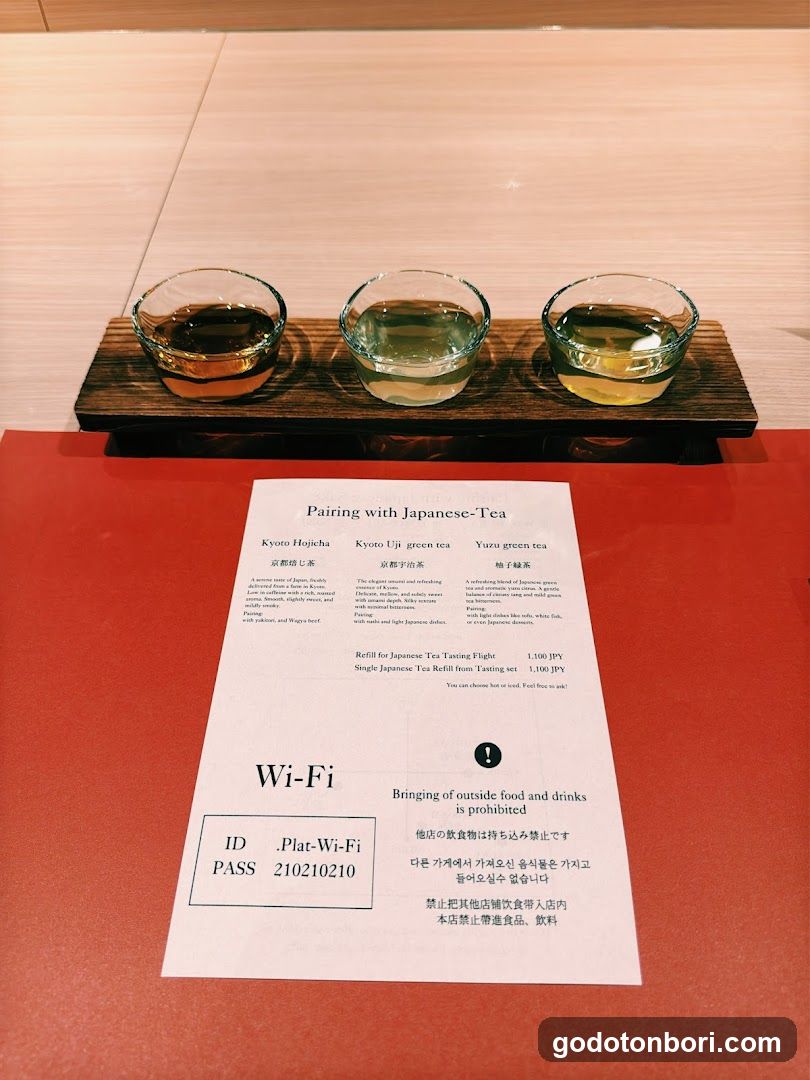 Pairing with Japanese-Tea
Kyoto Hojicha
京都焙じ茶
A serene taste of Japan, freshly
delivered from a farm in Kyoto.
Low in caffeine with a rich, roasted
aroma. Smooth, slightly sweet, and
mildly smoky.
Pairing:
with yakitori, and Wagyu beef.
Kyoto Uji green tea
京都宇治茶
The elegant umami and refreshing
essence of Kyoto.
Delicate, mellow, and subtly sweet
with umami depth. Silky texture
with minimal bitterness.
Pairing:
with sushi and light Japanese dishes.
Yuzu green tea
柚子緑茶
A refreshing blend of Japanese green
tea and aromatic yuzu citrus. A gentle
balance of citrusy tang and mild green
tea bitterness.
Pairing:
with light dishes like tofu, white fish,
or even Japanese desserts.
Refill for Japanese Tea Tasting Flight 1,100 JPY
Single Japanese Tea Refill from Tasting set 1,100 JPY
You can choose hot or iced. Feel free to ask!
Wi-Fi
ID .Plat-Wi-Fi
PASS 210210210
!
Bringing of outside food and drinks
is prohibited
他店の飲食物は持ち込み禁止です
다른 가게에서 가져오신 음식물은 가지고
들어오실수 없습니다
禁止把其他店铺饮食带入店内
本店禁止帶進食品、飲料
godotonbori.com